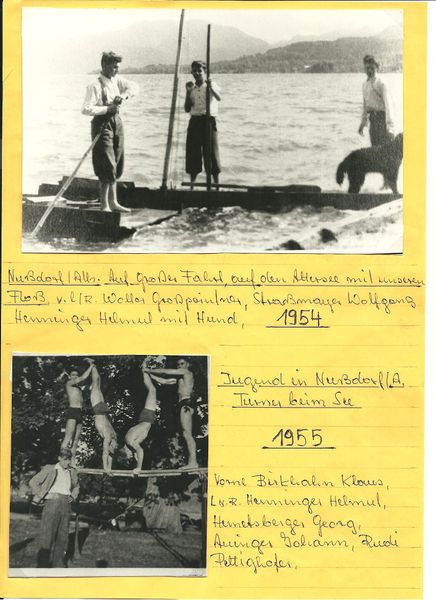 Nußdorf/Atts. Auf großer Fahrt, auf den Attersee mit unseren
Floß, v. l/R. Walter Großpointner, Straßmayer Wolfgang
Henninger Helmut mit Hund, 1954
Jugend in Nußdorf/A.
Turner beim See
1955
Vorne Birkhahn Klaus,
L.n.R. Henninger Helmut,
Hemetsberger Georg,
Auinger Johann, Rudi
Pettighofer,